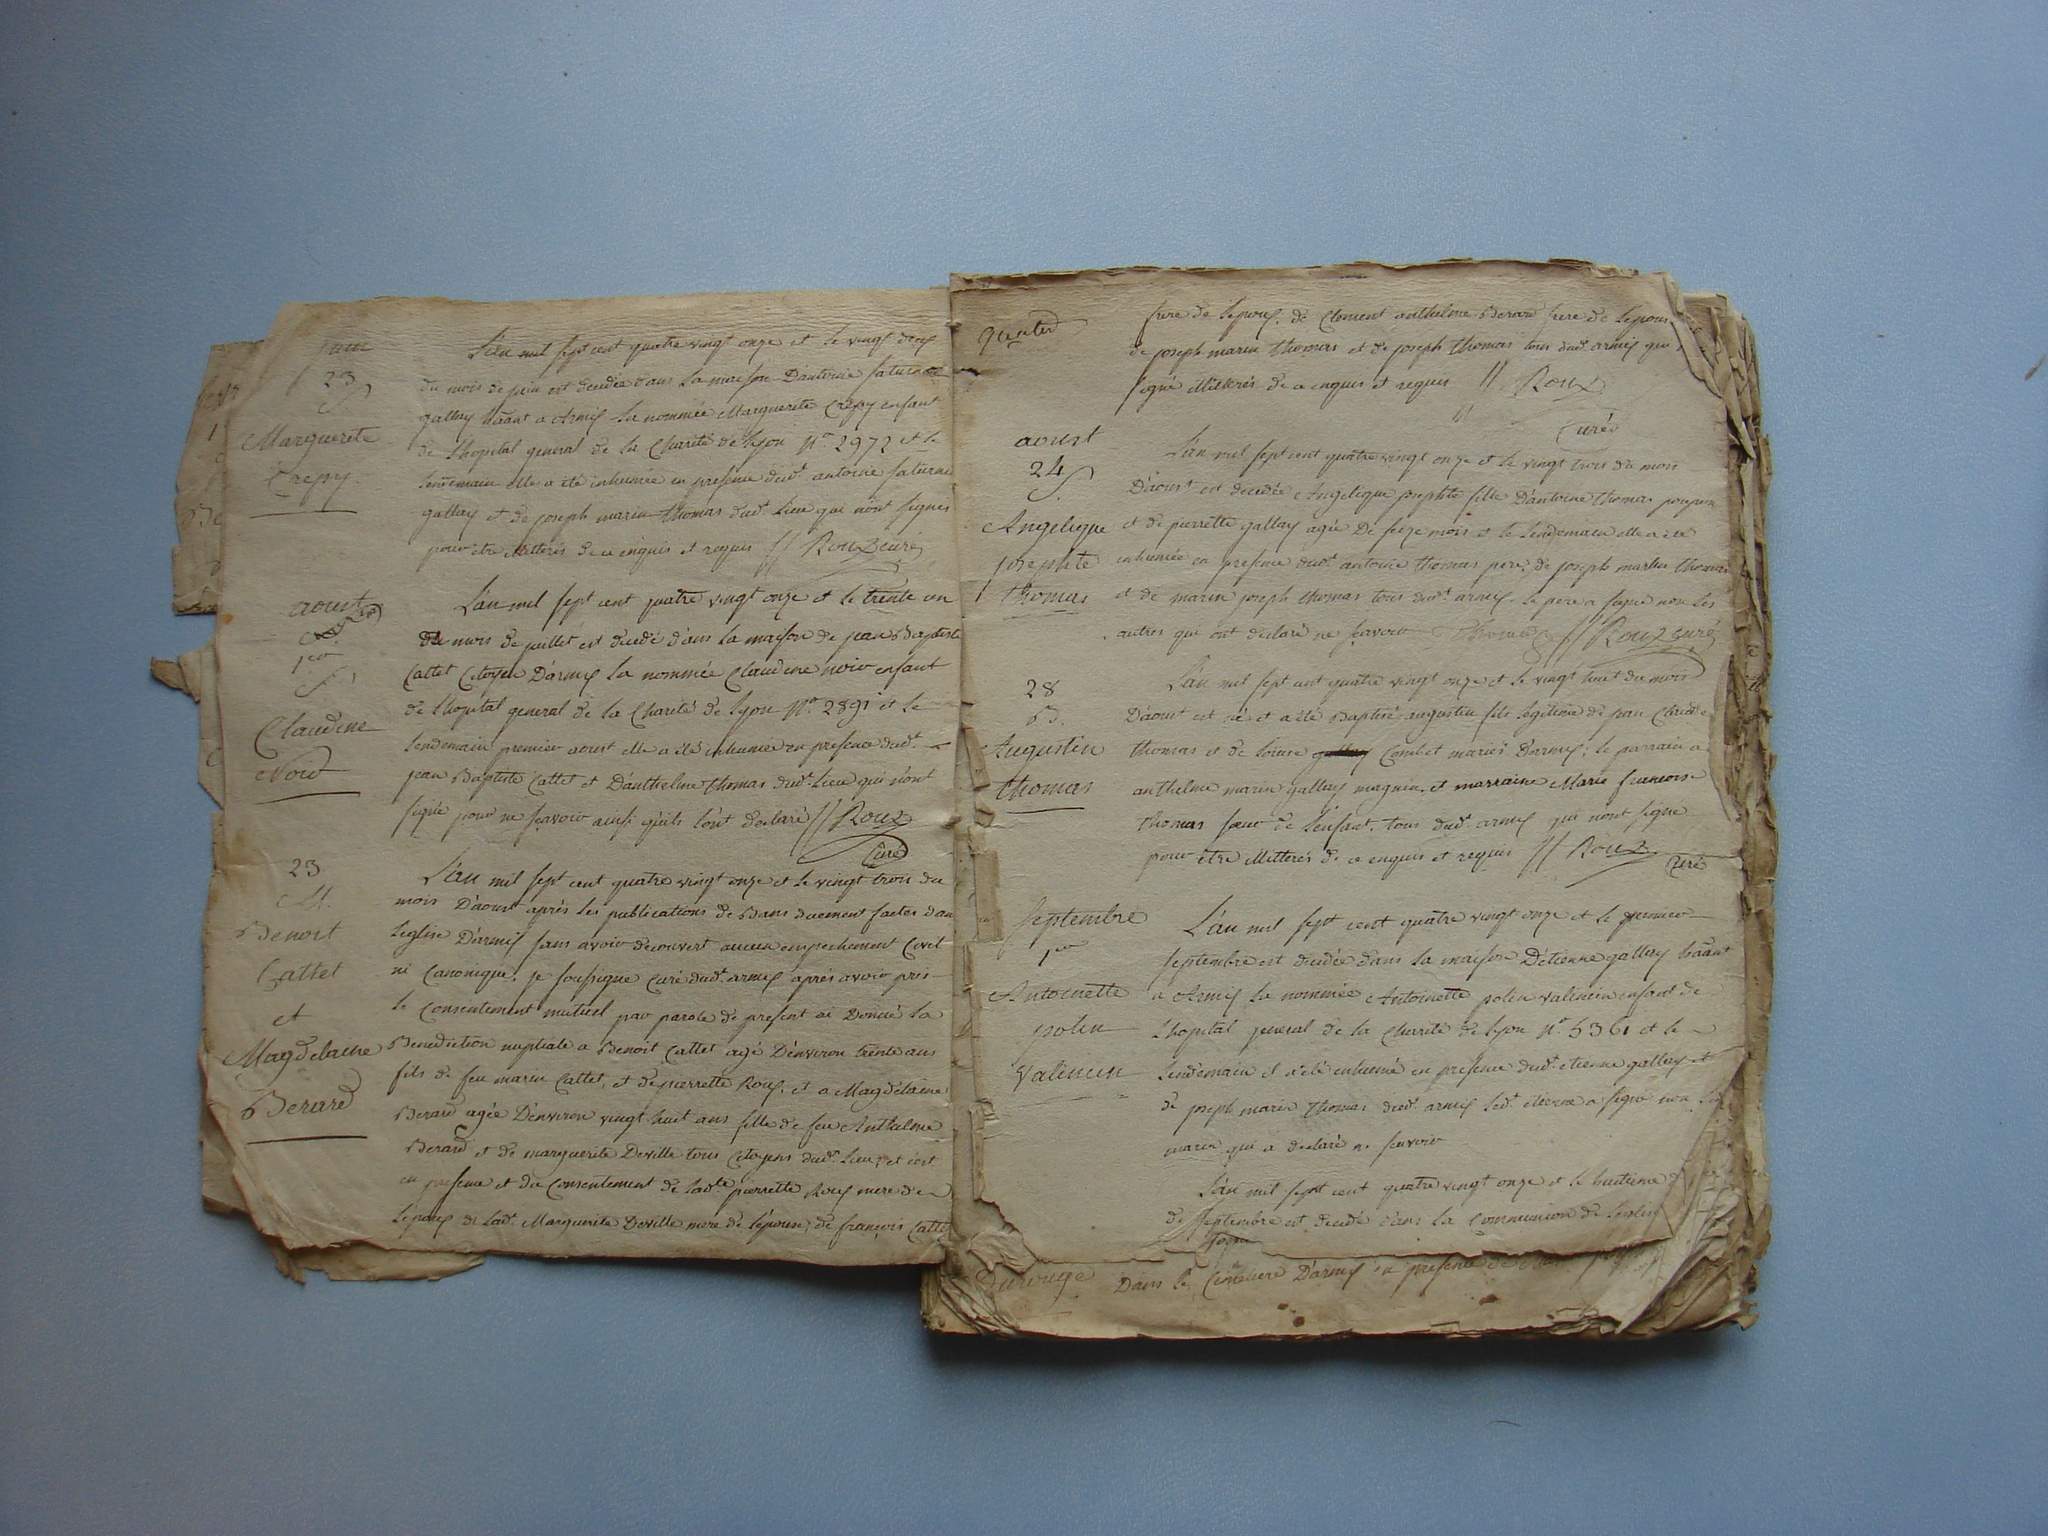 juin
23
S
Marguerite
Crepy
L'an mil sept cent quatre vingt onze et le vingt deux
du mois de juin est decedée dans la maison D'antoine saturnin
gallay h̄ant a Armix la nommée Marguerite Crepy enfant
de L'hopital general de la Charité de Lyon N.º 2972 et le
lendemain elle a été inhumée en presence dud.t antoine saturnin
gallay et de joseph marin thomas dud.t Lieu qui n'ont signes
pour être illitterés de ce enquis et requis // Roux curé
aoust
1er
S
Claudine
Noir
L'an mil sept cent quatre vingt onze et le trente un
du mois de juillet est decedé dans la maison de jean Baptiste
Cattet Citoyen D'armix la nommée Claudine noir enfant
de L'hopital general de la Charité de Lyon N.º 2891 et le
lendemain premier aoust elle a été inhumée en presence dud.t
jean Baptiste Cattet et D'anthelme thomas dud.t Lieu qui n'ont
signé pour ne sçavoir ainsi qu'ils l'ont declaré // Roux
Curé
23
M.
Benoit
Cattet
et
Magdelaine
Berard
L'an mil sept cent quatre vingt onze et le vingt trois du
mois D'aoust après les publications de Bans duement faites dans
leglise D'armix sans avoir decouvert aucun empechement Civil
ni Canonique, je soussigne Curé dud.t armix après avoir pris
le Consentement mutuel par parole de present ai Donné la
Benediction nuptiale a Benoit Cattet agé D'environ trente ans
fils de feu marin Cattet, et de pierrette Roux, et a Magdelaine
Berard agée D'environ vingt huit ans fille de feu Anthelme
Berard et de marguerite Deville tous Citoyens dud.t Lieu, et c'est
en presence et du Consentement de lad.te pierrette Roux mere de
L'époux de lad.t Marguerite Deville mere de L'épouse, de françois Cattet
frere de Lepoux, de Clement anthelme Berard frere de Lepouse
de joseph marin thomas et de joseph thomas tous dud.t armix qui
signé illitterés de ce enquis et requis // Roux
Curé
aoust
24
S
Angelique
josephte
thomas
L'an mil sept cent quatre vingt onze et le vingt trois du mois
D'aoust est decedée Angelique josephte fille D'antoine thomas
et de pierrette gallay agée De seize mois et le lendemain elle a été
inhumée en presence dud.t antoine thomas pere, de joseph marin thomas
et de marin joseph thomas tous dud.t armix le pere a signé non les
autres qui ont declaré ne sçavoir Thomas // Roux curé
28
B.
Augustin
thomas
L'an mil sept cent quatre vingt onze et le vingt huit du mois
D'aoust est né et a été Baptisé augustin fils legitime de jean Claude
thomas et de louise Combet mariés D'armix; le parrain a
anthelme marin gallay magnin, et marraine Marie francoise
thomas sœur de l'enfant, tous dud.t armix qui n'ont signé
pour être illitterés de ce enquis et requis // Roux
Curé
septembre
1er
Antoinette
polin
valincin
L'an mil sept cent quatre vingt onze et le premier
septembre est decedée dans la maison D'etienne gallay h̄ant
a Armix la nommée Antoinette polin valincin enfant de
L'hopital general de la Charité de Lyon N.º 5361 et le
lendemain il a été inhumé en presence dud.t etienne gallay et
de joseph marin thomas dud.t armix led.t etienne a signé non led
marin qui a declaré ne sçavoir
L'an mil sept cent quatre vingt onze et le huitieme
de septembre est decedé dans la Communion de leglise
Durouge
Dans le Cimetiere D'armix en presence de